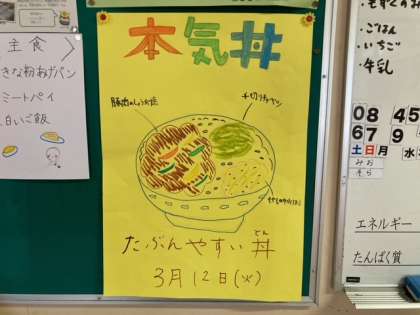 主食
きな粉あげパン
ミートパイ
白いご飯
本気丼
豚肉のしょうが焼
千切りキャベツ
たぶんやすい丼
どん
3月12日(火)
ごはん
いちご
牛乳
08 45
67 9
土日月 水
みお
そら
エネルギー
たんぱく質